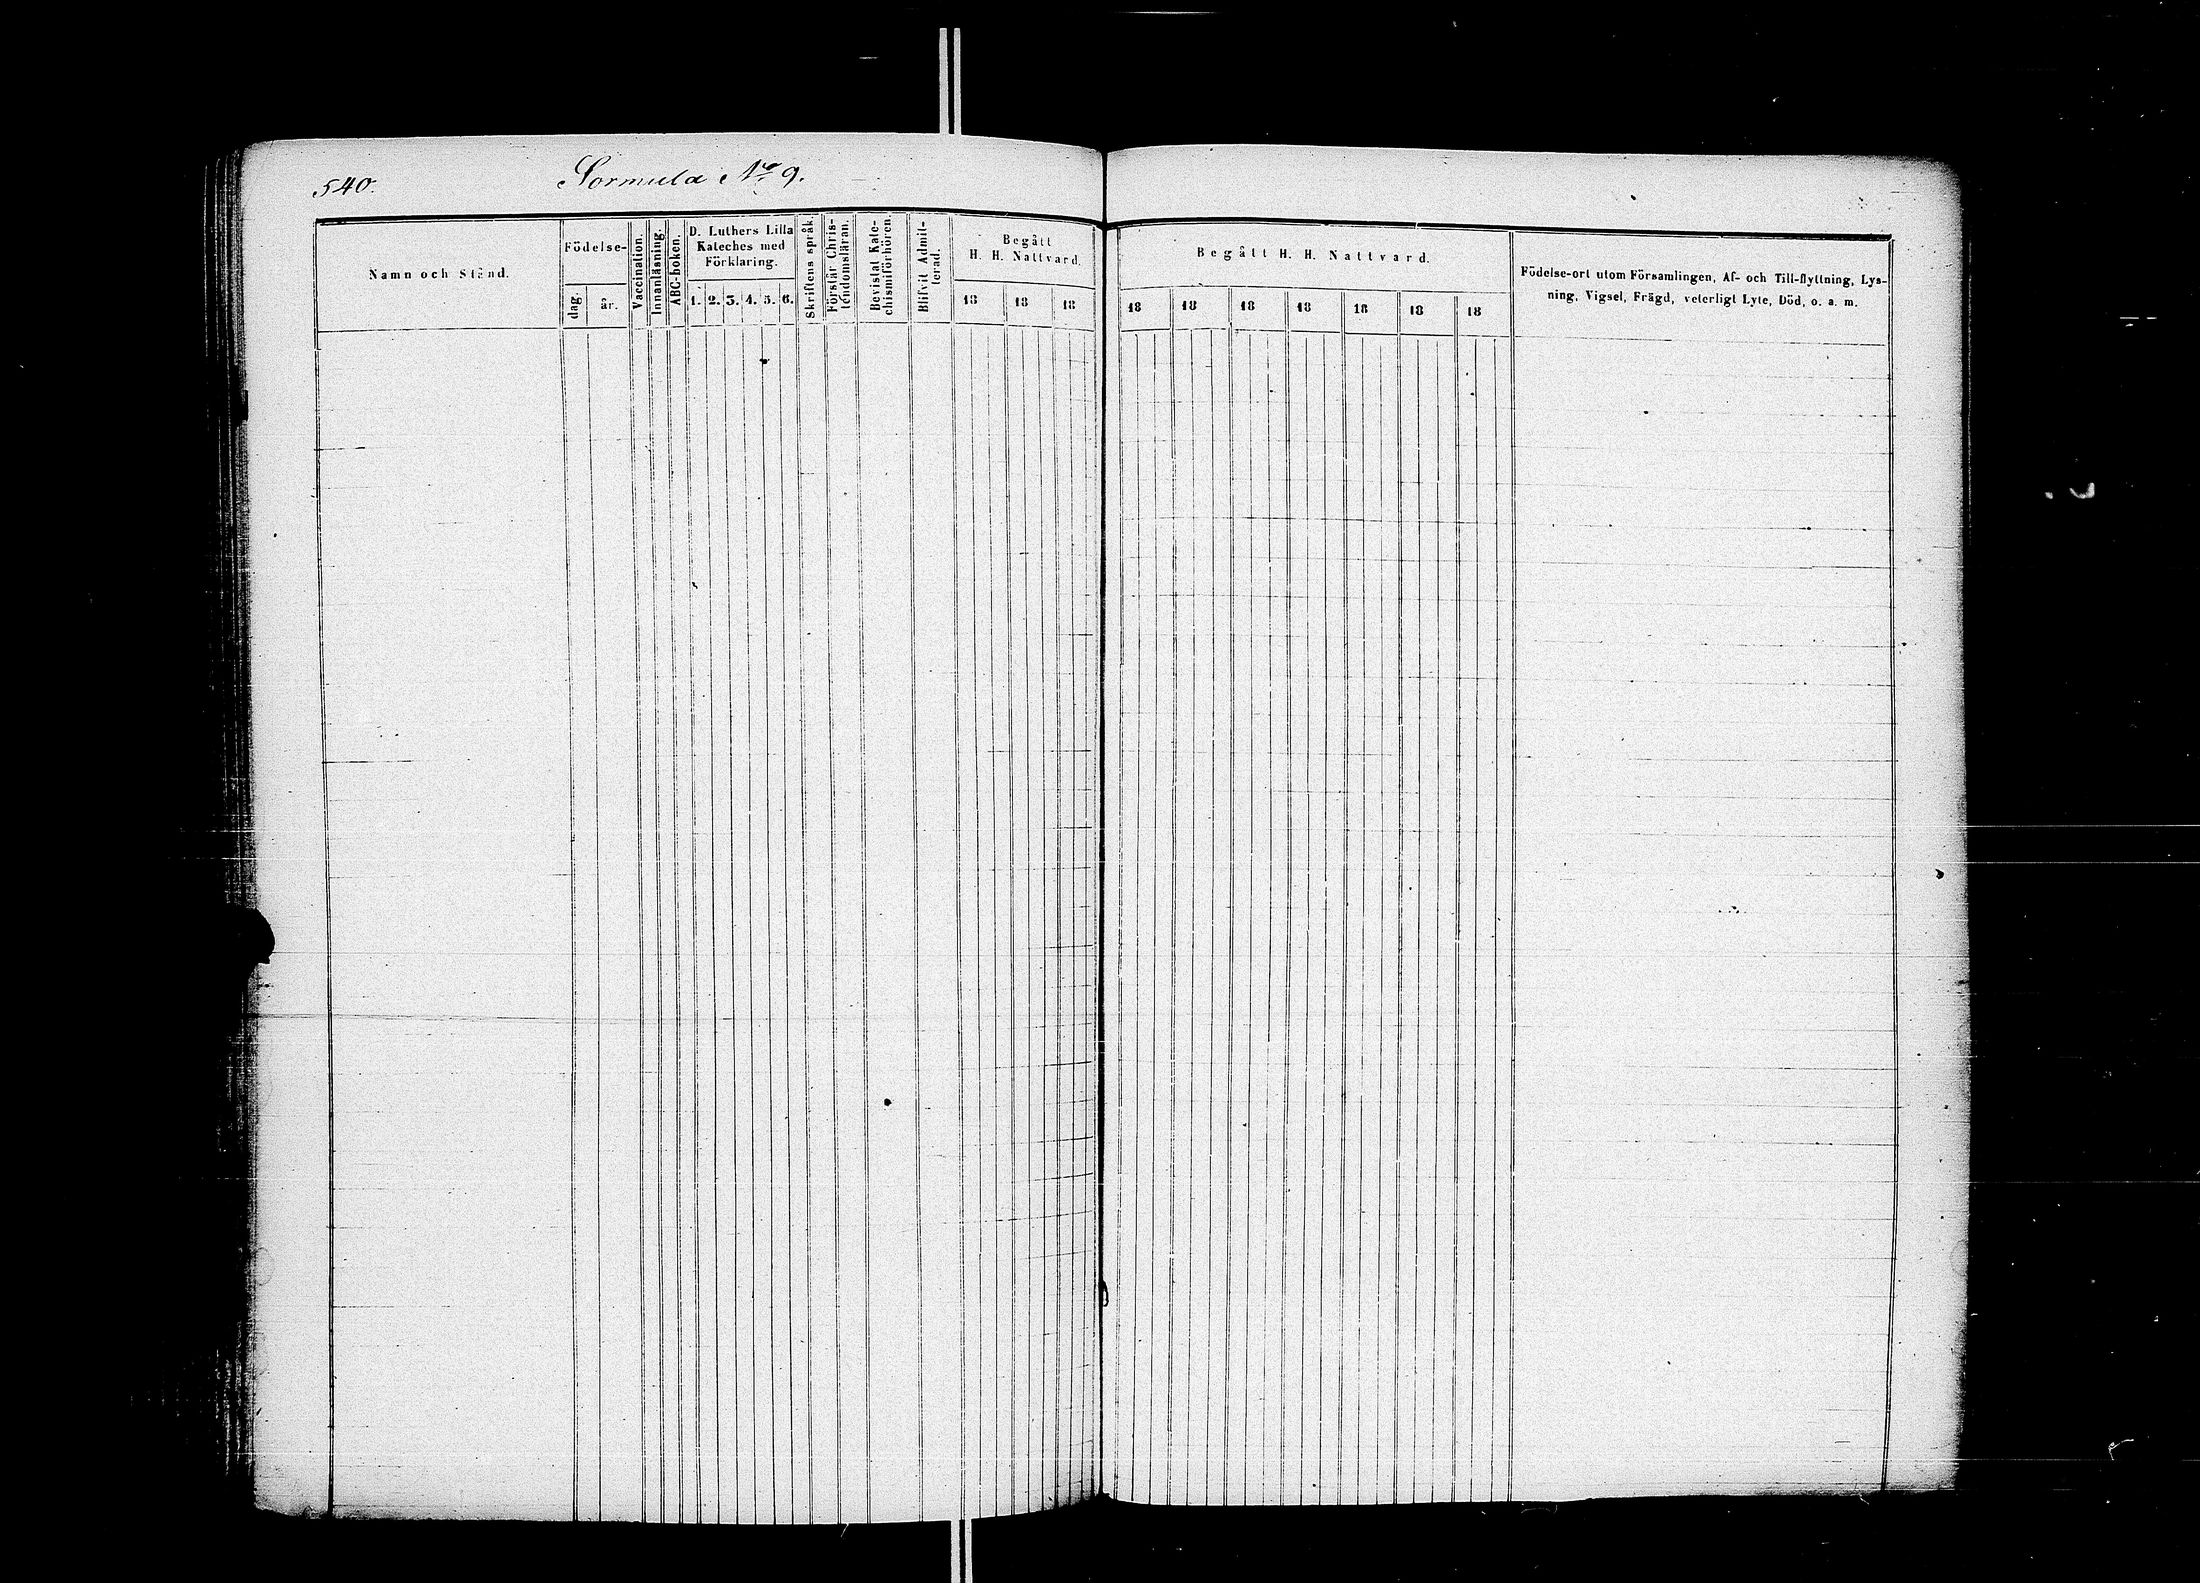 540.
Sormula No 9.
Namn och Stånd.
Födelse-
dag.
år.
Vaccination.
Innanläsning.
ABC-boken.
D. Luthers Lilla
Kateches med
Förklaring.
1. 2. 3. 4. 5. 6.
Skriftens språk.
Förstår Chris-
tendomsläran.
Bevistat Kate-
chismiförhören.
Blifvit Admit-
terad.
Begått
H. H. Nattvard.
18 18 18
Begått H. H. Nattvard.
18 18 18 18 18 18 18
Födelse-ort utom Församlingen, Af- och Till-flyttning, Lys-
ning, Vigsel, Frägd, veterligt Lyte, Död, o. a. m.